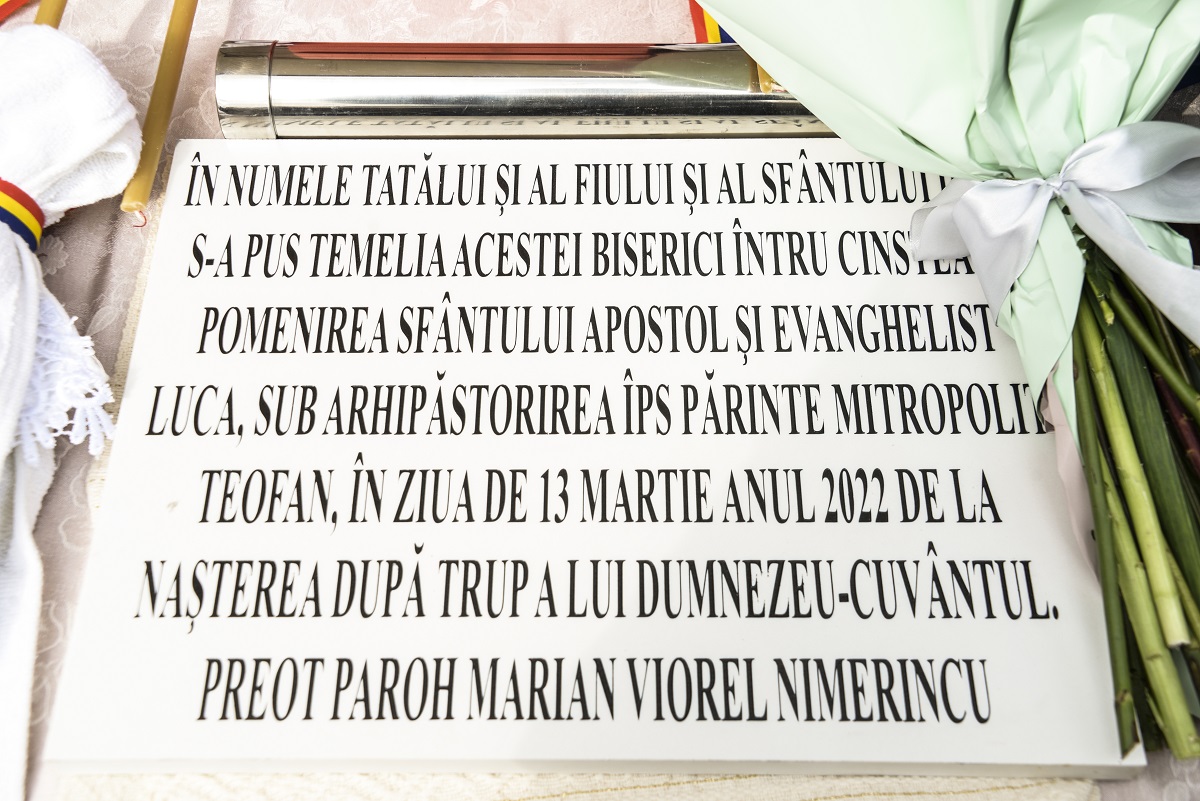 ÎN NUMELE TATĂLUI ȘI AL FIULUI ȘI AL SFÂNTULUI
S-A PUS TEMELIA ACESTEI BISERICI ÎNTRU CINSTEA
POMENIREA SFÂNTULUI APOSTOL ȘI EVANGHELIST
LUCA, SUB ARHIPĂSTORIREA ÎPS PĂRINTE MITROPOLIT
TEOFAN, ÎN ZIUA DE 13 MARTIE ANUL 2022 DE LA
NAȘTEREA DUPĂ TRUP A LUI DUMNEZEU-CUVÂNTUL.
PREOT PAROH MARIAN VIOREL NIMERINCU